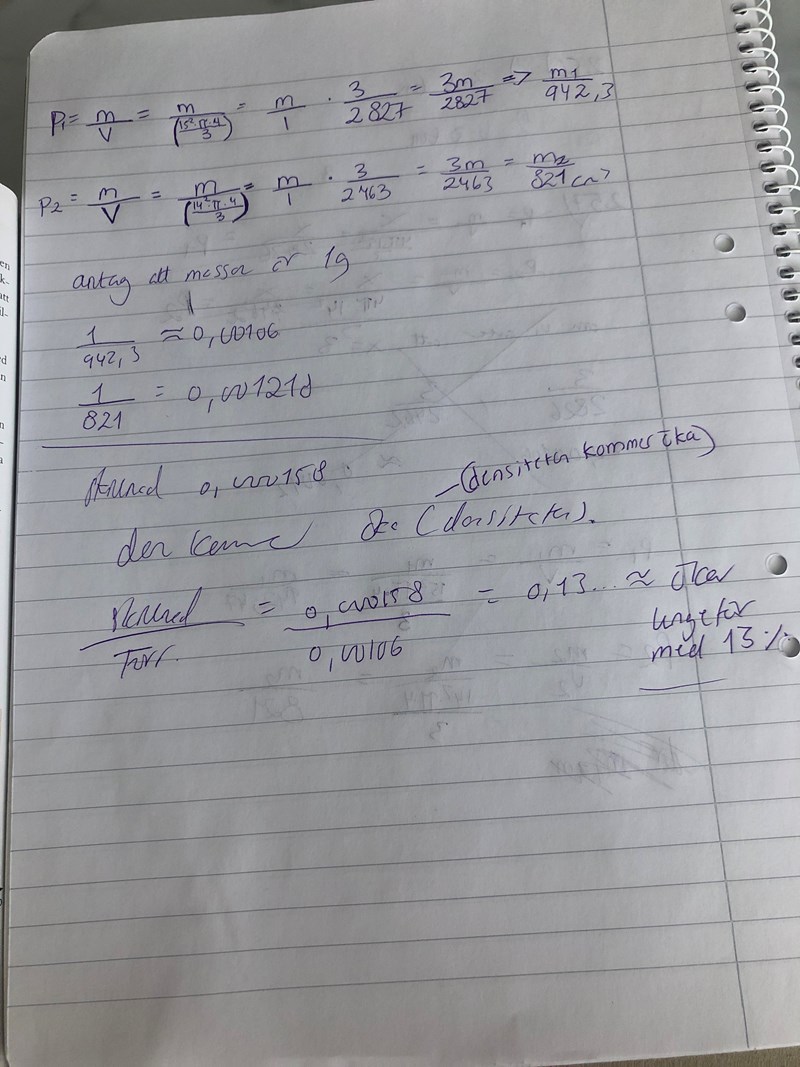 P₁ = m/V = m/(15²·π·4/3) = m/1 · 3/2827 = 3m/2827 => m1/942,3
P₂ = m/V = m/(14²·π·4/3) = m/1 · 3/2463 = 3m/2463 = m₂/821 cm³
antag att massan är 1g
1/942,3 ≈ 0,00106
1/821 = 0,001218
0,000158
(densiteten kommer öka)
den kommer öka (densiteten).
= 0,000158/0,00106 = 0,13... ≈ ökar
ungefär
med 13%